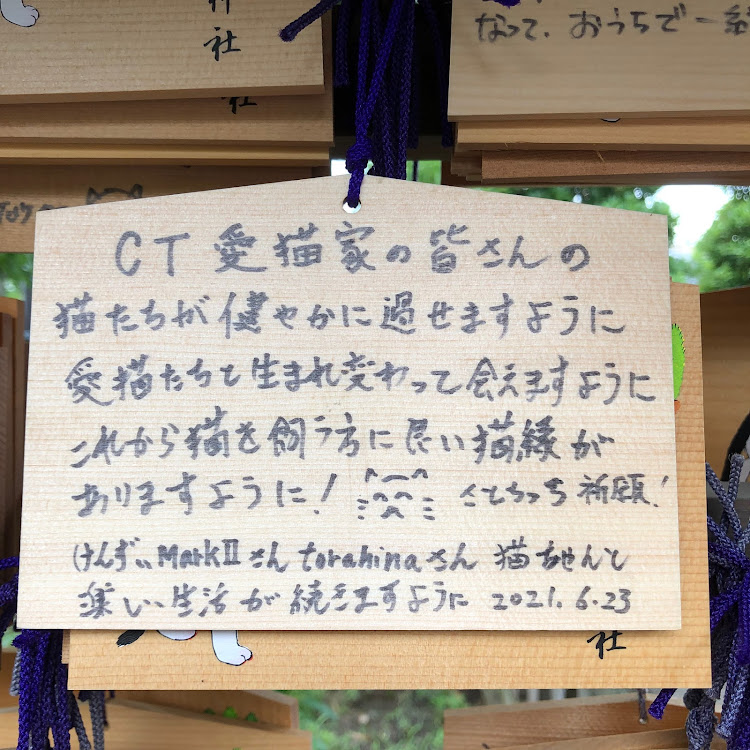 神社
社
なって、おうちで一緒
CT愛猫家の皆さんの
猫たちが健やかに過せますように
愛猫たちと生まれ変わって会えますように
これから猫を飼う方に良い猫縁が
ありますように! さとちっち祈願!
けんずぃMarkIIさんtorahinaさん 猫ちゃんと
楽しい生活が続きますように 2021.6.23
社